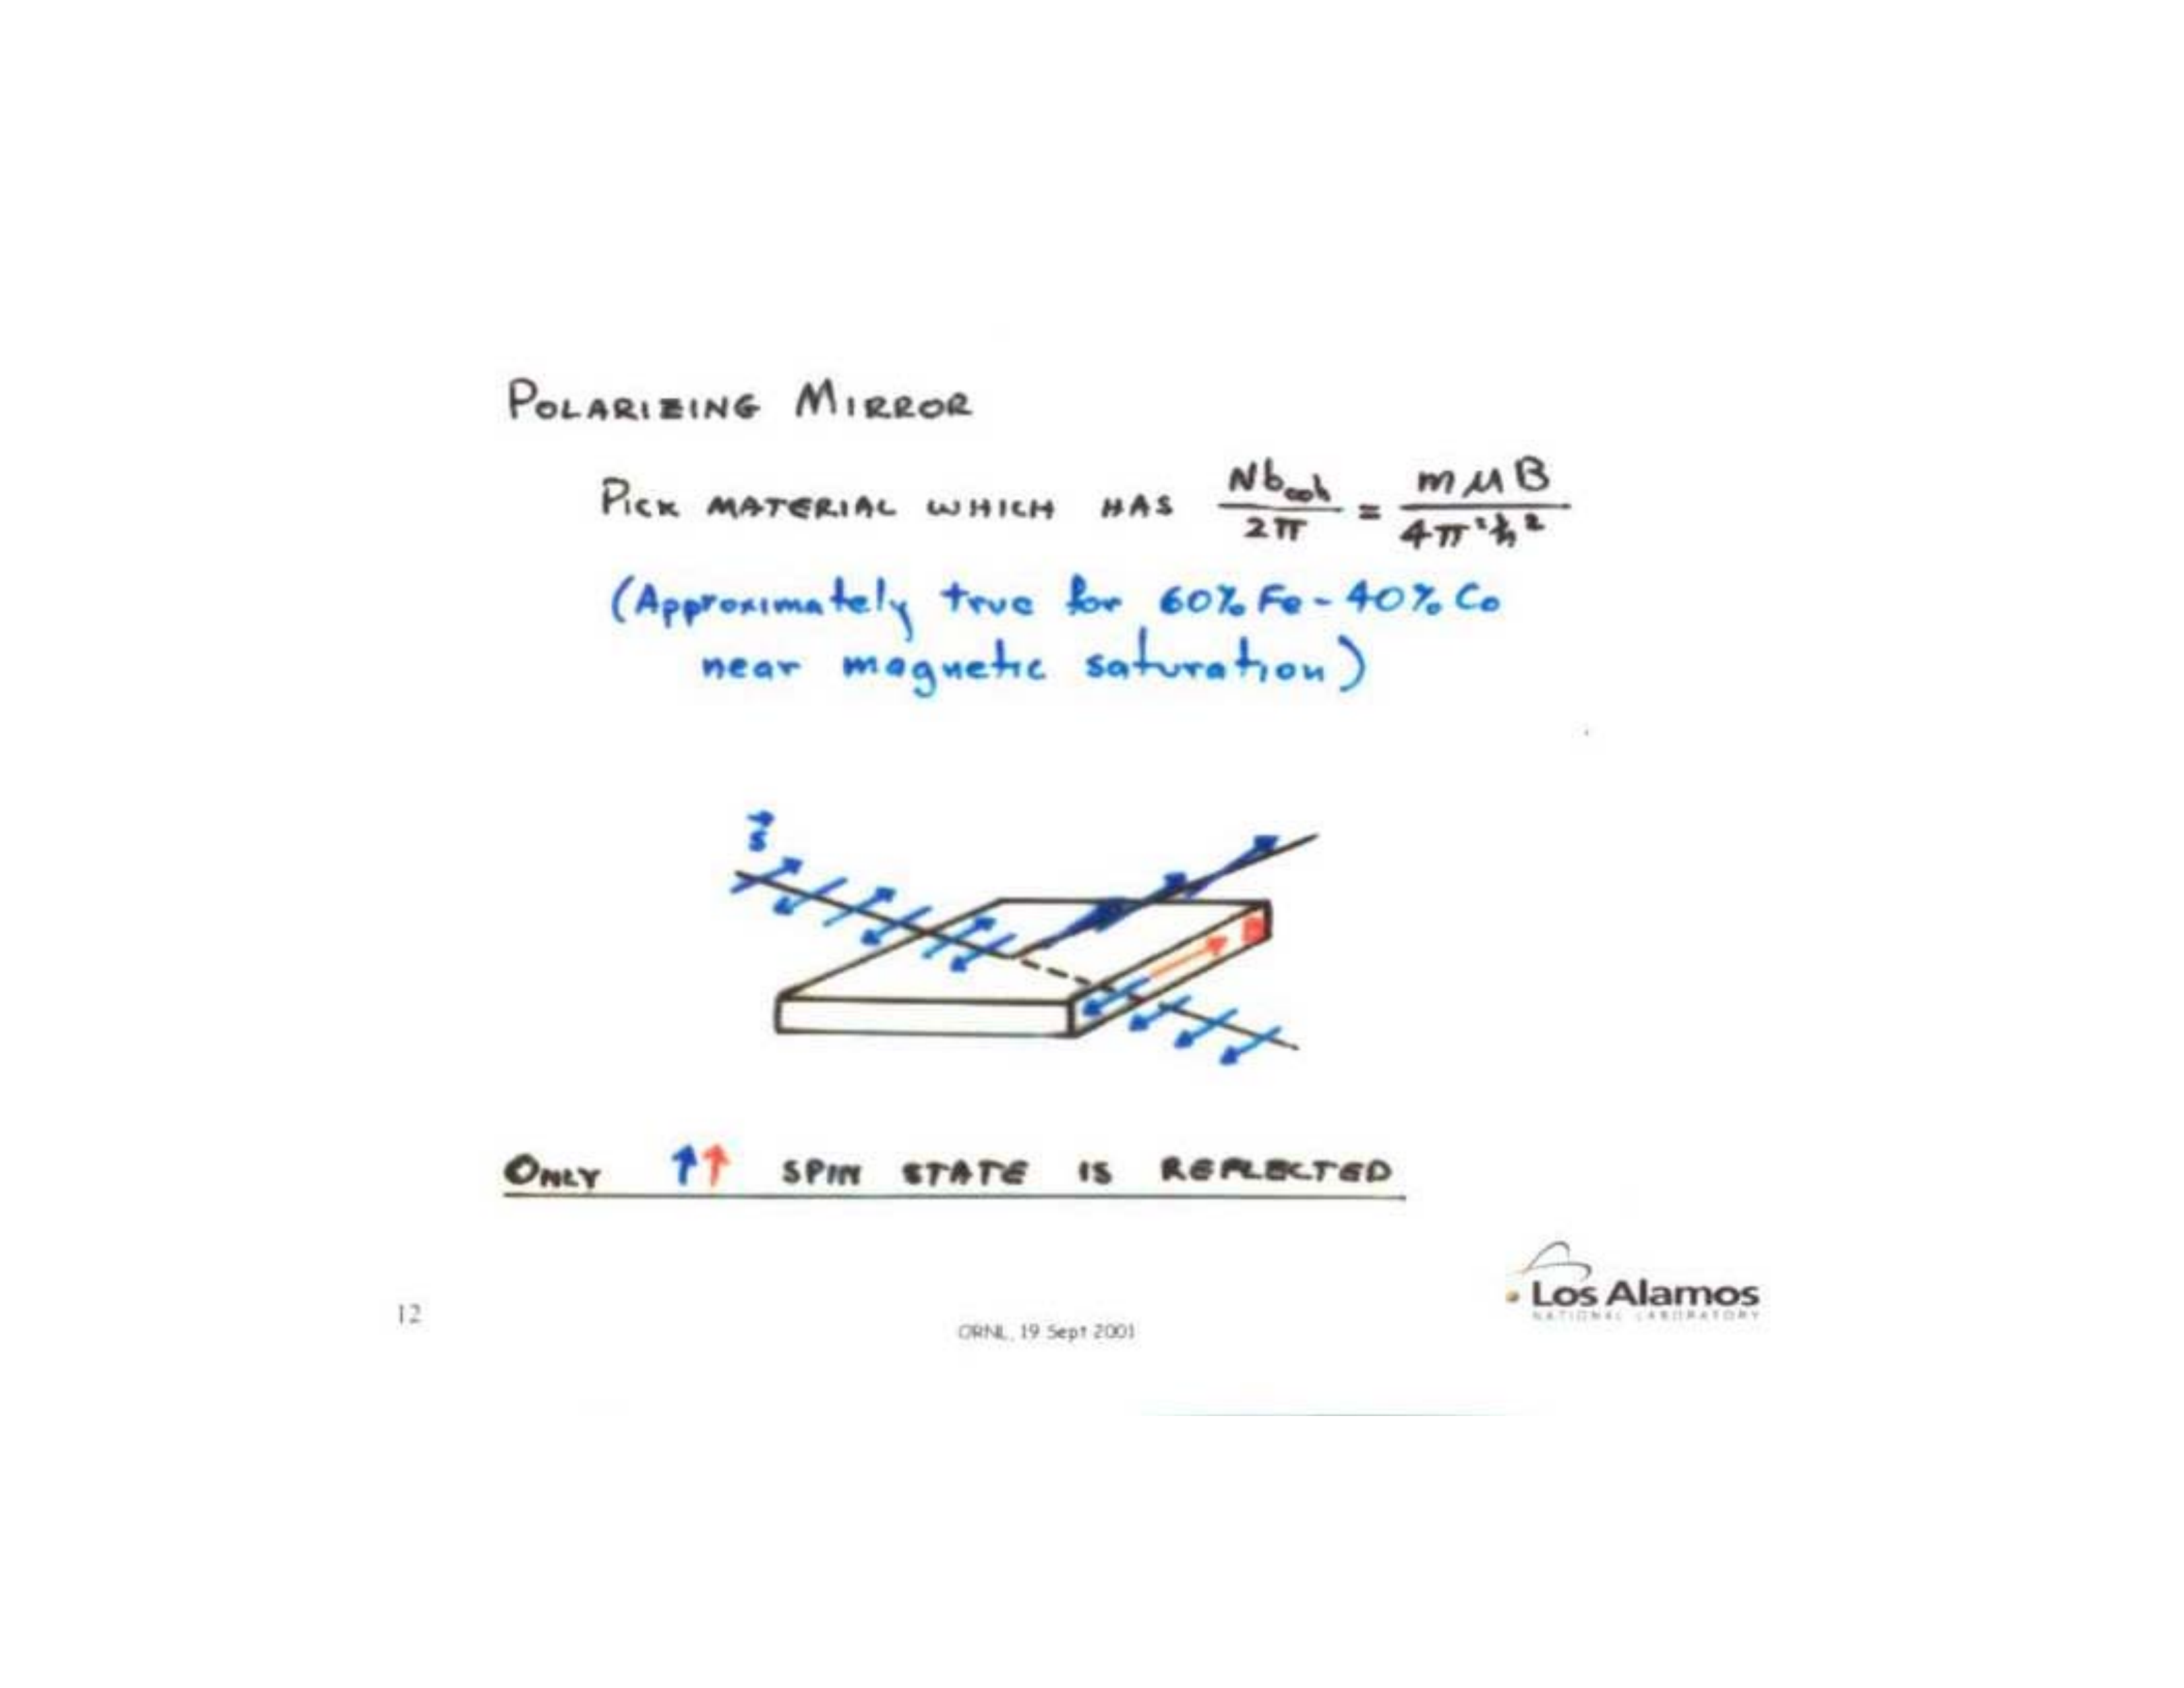 POLARIZING MIRROR
PICK MATERIAL WHICH HAS Nb_coh/2π = mμB/4π²ħ²
(Approximately true for 60% Fe - 40% Co
near magnetic saturation)
s⃗
B
ONLY ↑↑ SPIN STATE IS REFLECTED
Los Alamos
NATIONAL LABORATORY
12
ORNL, 19 Sept 2001